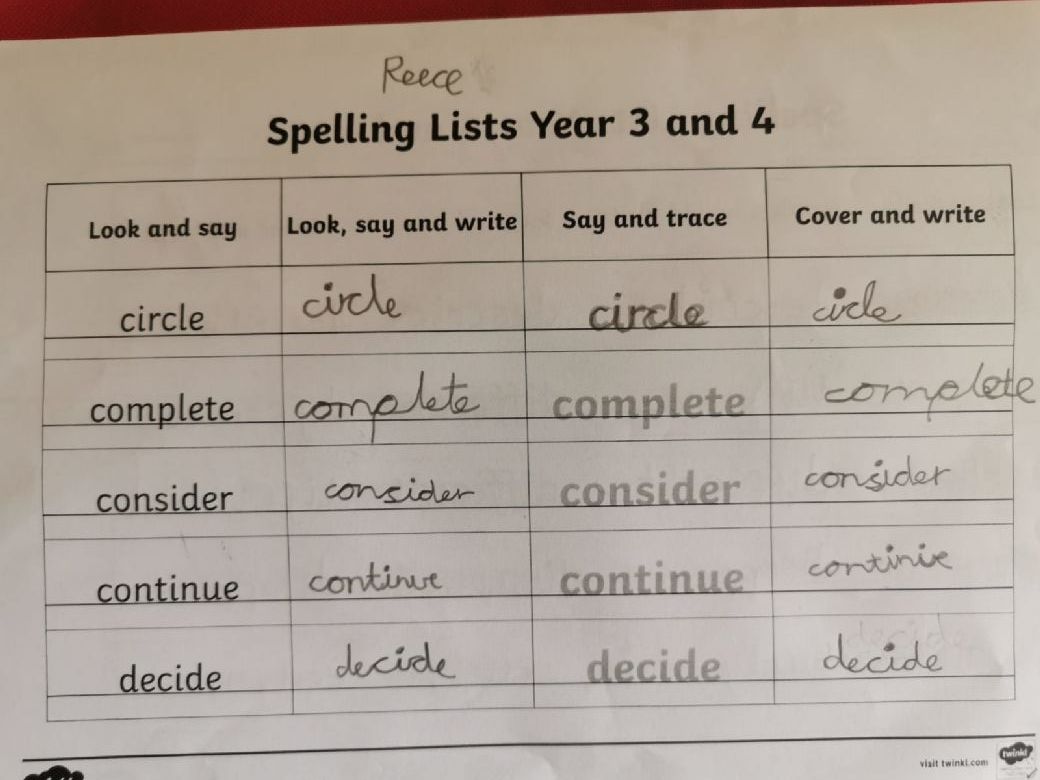 Reece
Spelling Lists Year 3 and 4
Look and say Look, say and write Say and trace Cover and write
circle circle circle cicle
complete complete complete complete
consider consider consider consider
continue continue continue continie
decide decide decide decide
visit twinkl.com twinkl